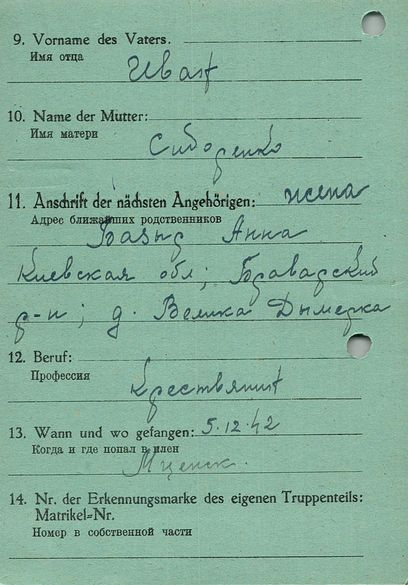 9. Vorname des Vaters.
Имя отца
Иван
10. Name der Mutter:
Имя матери
Сидоренко
11. Anschrift der nächsten Angehörigen: жена
Адрес ближайших родственников
Анна
Киевская обл; Броварский
р-н; д. Велика Дымерка
12. Beruf:
Профессия
Крествянин
13. Wann und wo gefangen: 5.12.42
Когда и где попал в плен
Мценск.
14. Nr. der Erkennungsmarke des eigenen Truppenteils:
Matrikel-Nr.
Номер в собственной части